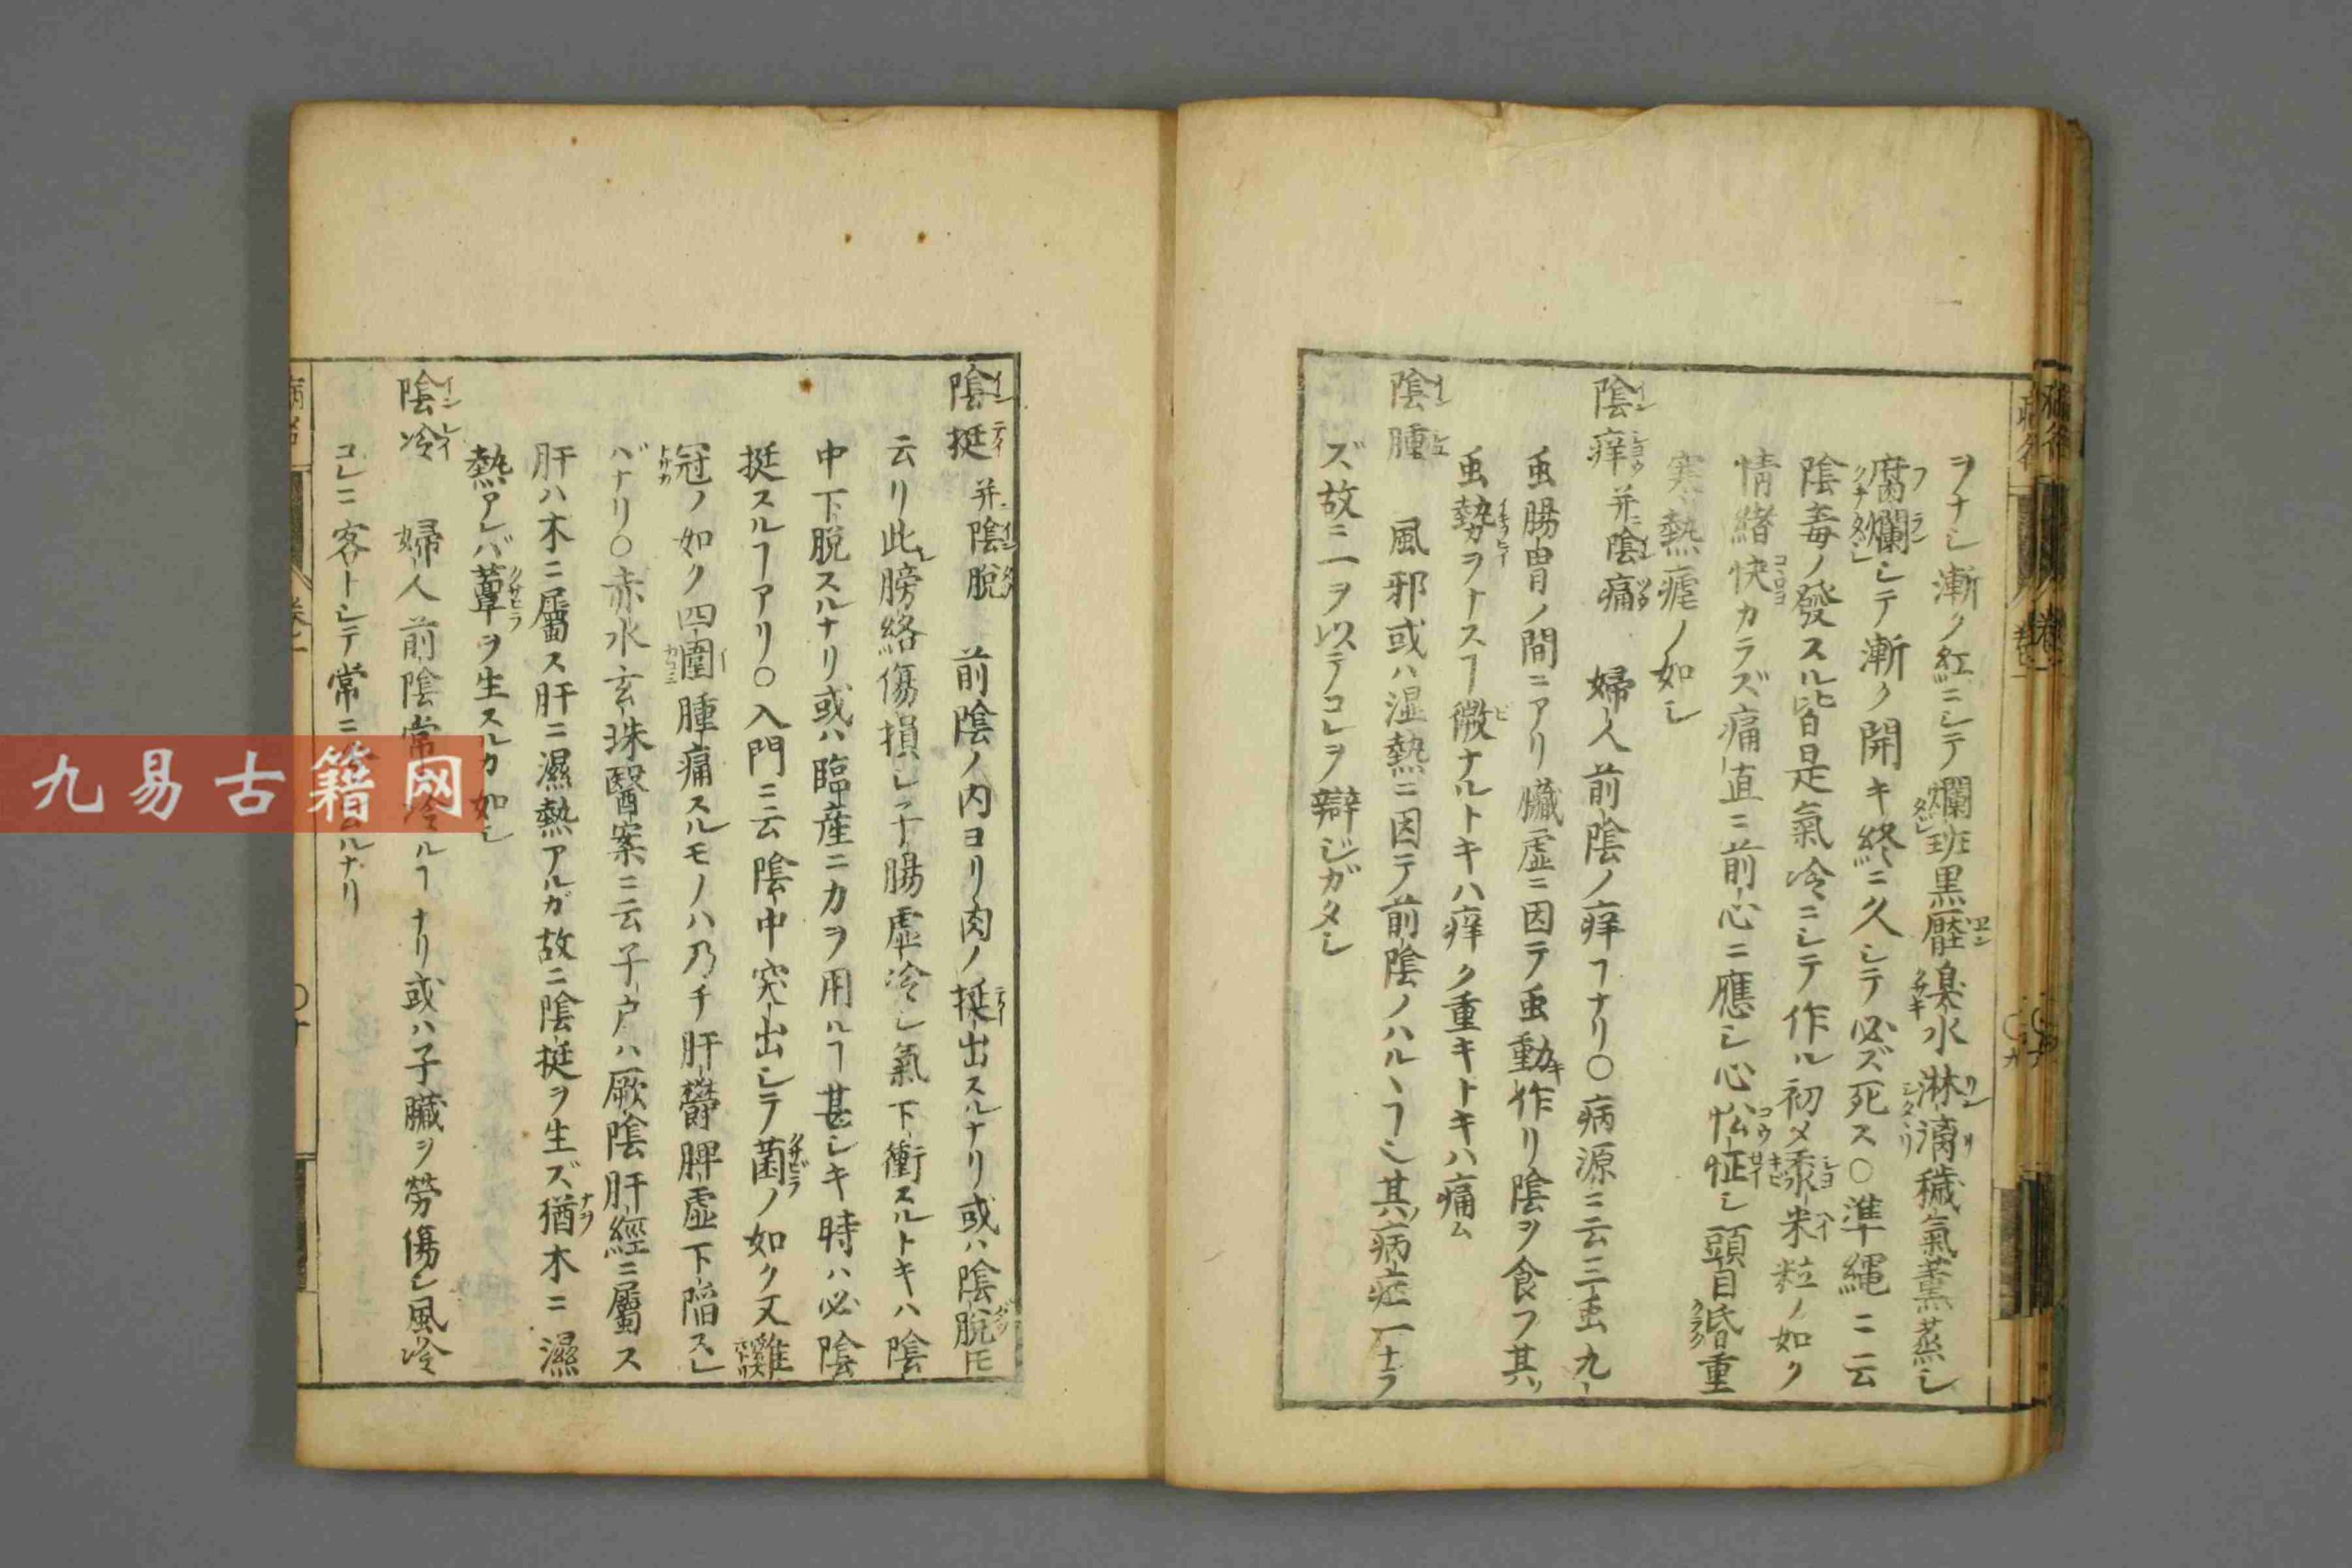 ヲナシ漸ク紅ニシテ爛斑黒黶臭水淋漓穢氣薫蒸シ
腐爛シテ漸ク開キ終ニ久シテ必ズ死ス○準縄ニ云
陰毒ノ發スル皆是氣冷ニシテ作ル初メ黍米粒ノ如ク
情緒快カラズ痛直ニ前心ニ應シ心忪怔シ頭目昏重
寒熱瘧ノ如シ
陰痒并ニ陰痛 婦人前陰ノ痒ヿナリ○病源ニ云三虫九
虫腸胃ノ間ニアリ臓虚ニ因テ虫動キ作リ陰ヲ食フ其
虫勢力ヲナスヿ微ナルトキハ痒ク重キトキハ痛ム
陰腫 風邪或ハ湿熱ニ因テ前陰ノハルヽヿ也其病症一ナラ
ズ故ニ一ヲ以テコレヲ辯ジガタシ
陰挺并ニ陰脱 前陰ノ内ヨリ肉ノ挺出スルナリ或ハ陰脱トモ
云リ此レ膀絡傷損シ子腸虚冷シ氣下衝スルトキハ陰
中下脱スルナリ或ハ臨産ニカヲ用ルヿ甚シキ時ハ必陰
挺スルヿアリ○入門ニ云陰中突出シテ菌ノ如ク又雞
冠ノ如ク四圍腫痛スルモノハ乃チ肝鬱脾虚下陥スレ
バナリ○赤水玄珠醫案ニ云子戸ハ厥陰肝經ニ屬ス
肝ハ木ニ屬ス肝ニ濕熱アルガ故ニ陰挺ヲ生ズ猶木ニ濕
熱アレバ蕈ヲ生スルカ如シ
陰冷 婦人前陰常ニ冷ルヿナリ或ハ子臓ヲ勞傷シ風冷
コレニ客トシテ常ニ ルナリ
九易古籍网